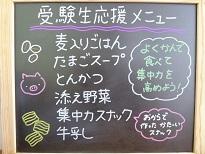 受験生応援メニュー
麦入りごはん
たまごスープ
とんかつ
添え野菜
集中力スナック
牛乳
よくかんで
食べて
集中力を
高めよう!
おからで
作った かたーい
スナック